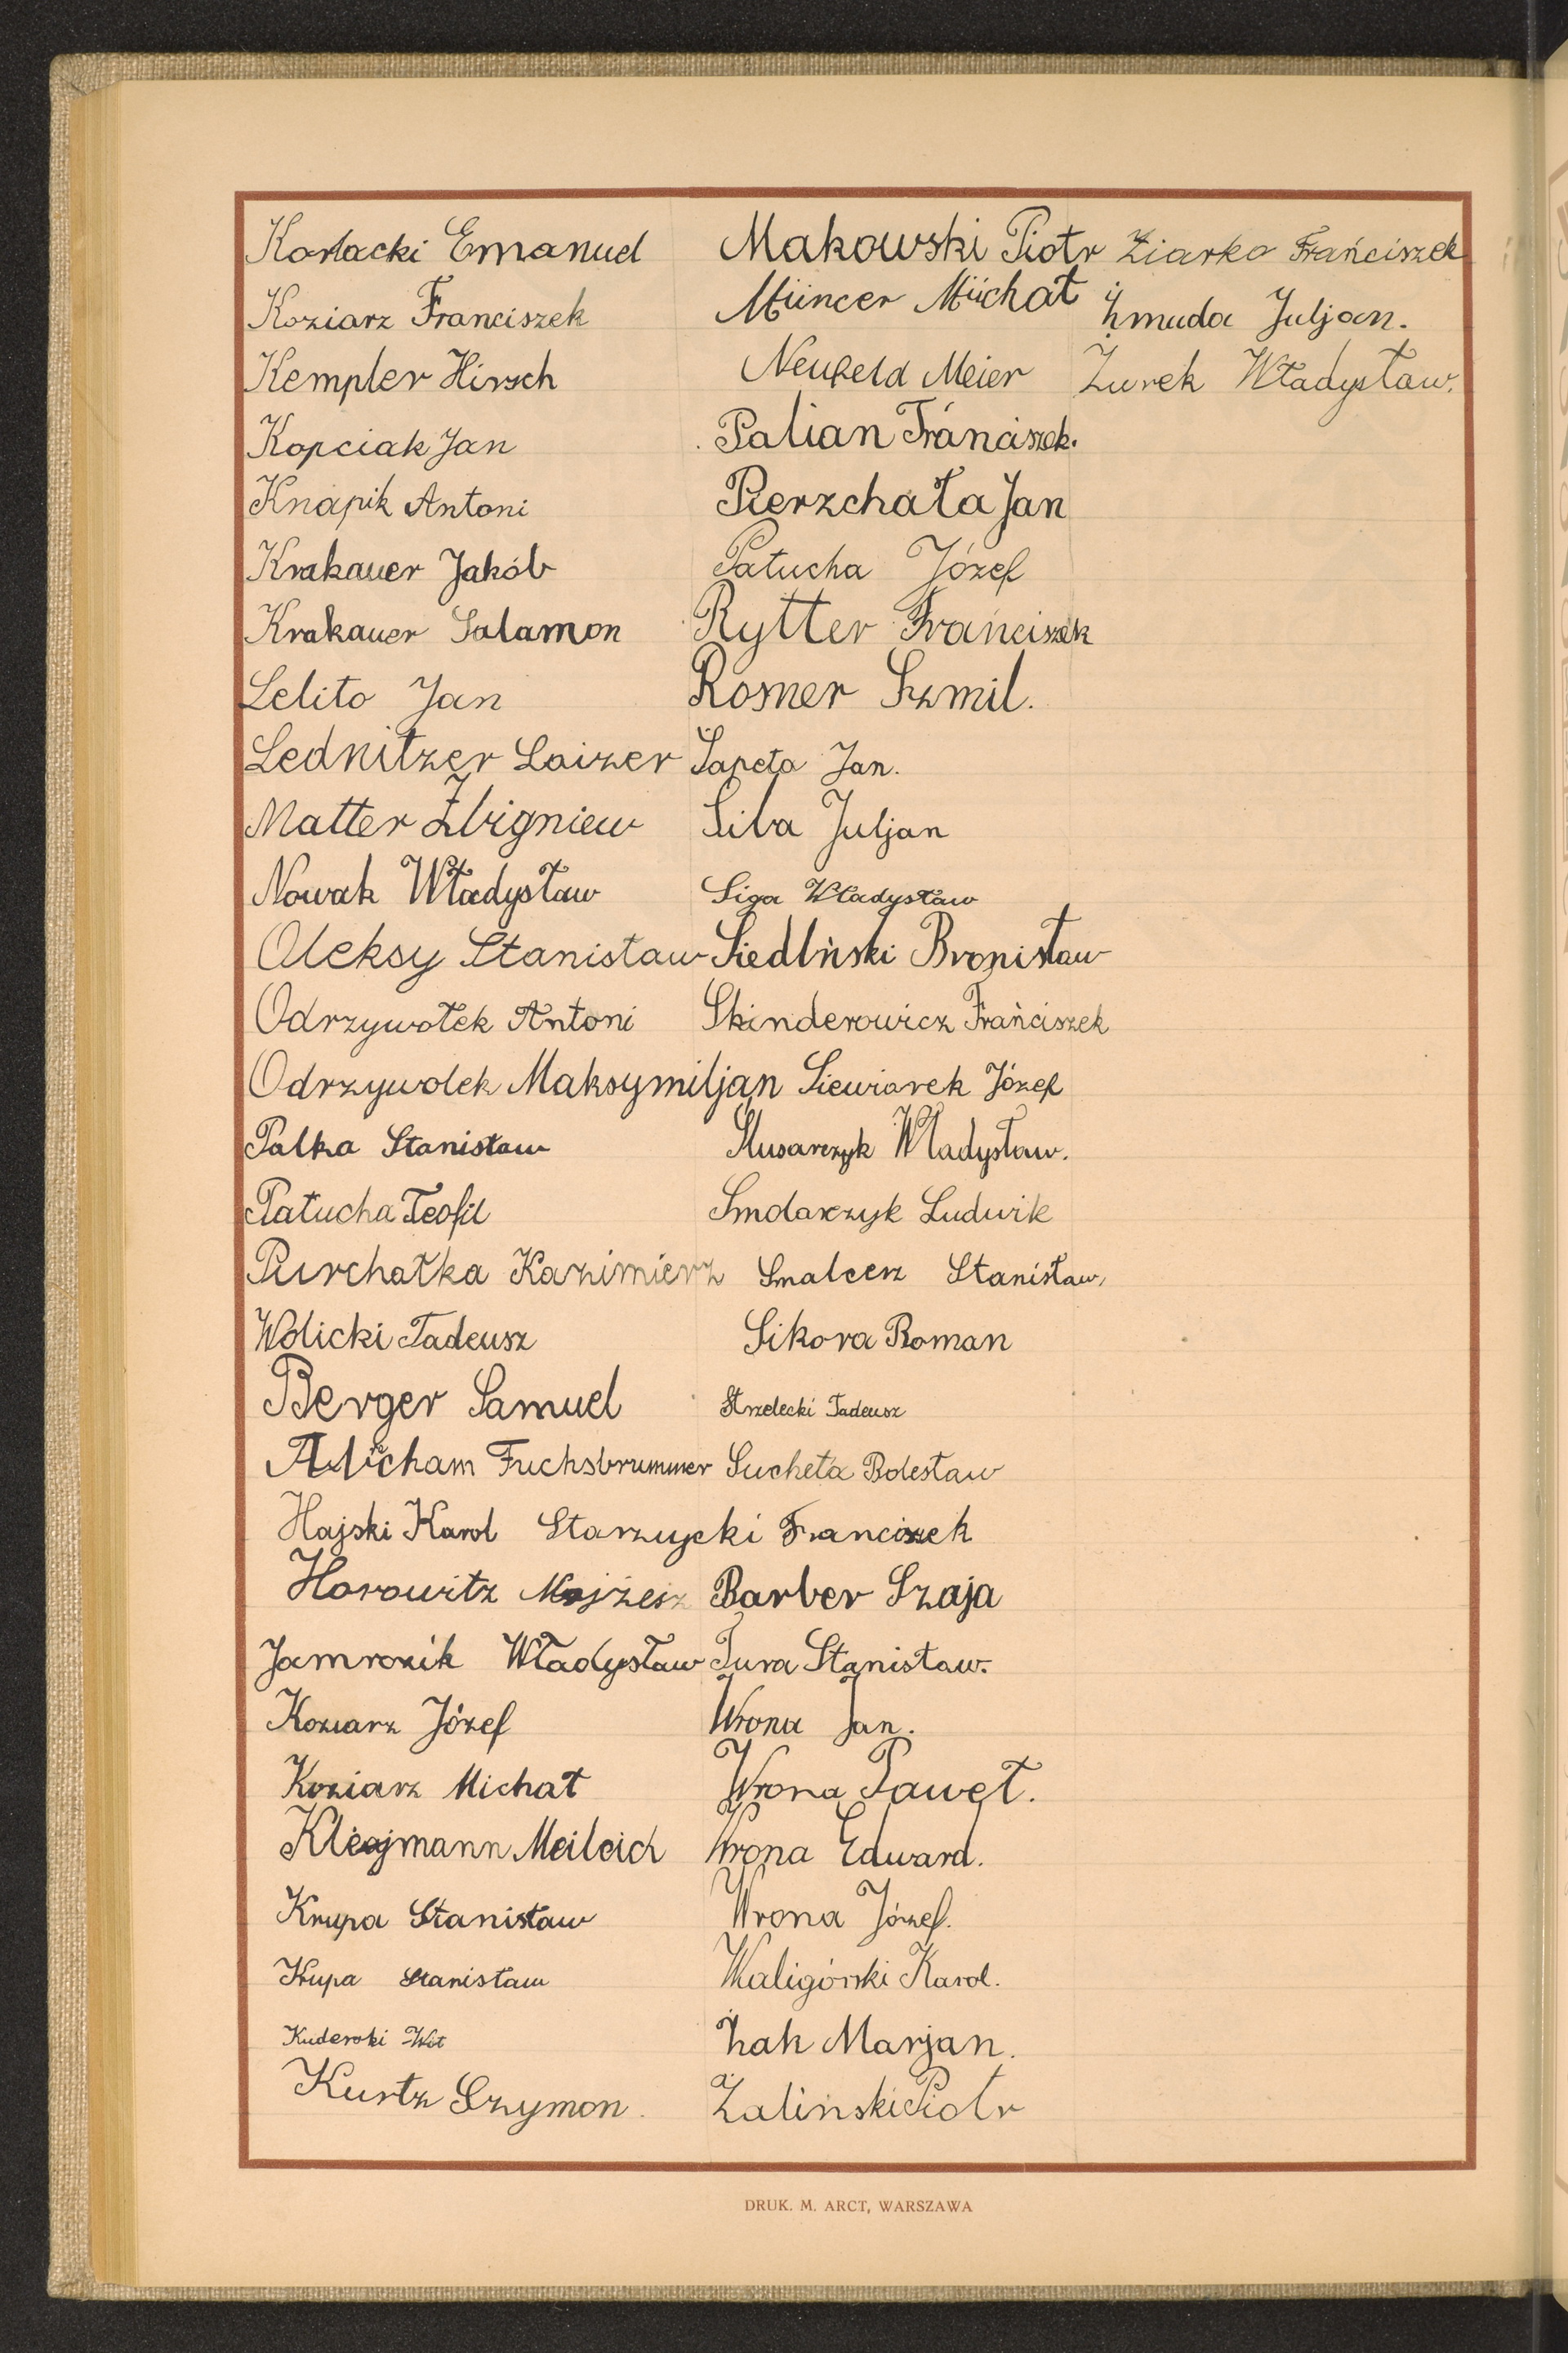 Korlacki Emanuel
Koziarz Franciszek
Kempler Hirsch
Kopciak Jan
Knapik Antoni
Krakauer Jakób
Krakauer Salamon
Lelito Jan
Lednitzer Laizer
Matter Zbigniew
Nowak Władysław
Oleksy Stanisław
Odrzywołek Antoni
Odrzywolek Maksymiljan
Palka Stanisław
Patucha Teofil
Purchałka Kazimierz
Wolicki Tadeusz
Berger Samuel
Fuchsbrummer
Hajski Karol
Horowitz Mojżesz
Jamrozik Władysław
Koziarz Józef
Koziarz Michał
Klejmann Meileich
Krupa Stanisław
Krupa Stanisław
Kuderski Wit
Kurtz Szymon
Makowski Piotr
Müncer Müchał
Neufeld Meier
Palian Franciszek.
Pierzchała Jan
Patucha Józef
Rytter Franciszek
Rosner Szmil.
Sapeta Jan.
Siba Juljan
Siga Władysław
Siedlński Bronisław
Skinderowicz Franciszek
Siewiorek Józef
Ślusarczyk Władysław.
Smolarzyk Ludwik
Smalcerz Stanisław,
Sikora Roman
Strzelecki Tadeusz
Sucheta Bolesław
Starzycki Franciszek
Barber Szaja
Tura Stanisław.
Wrona Jan.
Wrona Paweł.
Wrona Edward.
Wrona Józef.
Waligórski Karol.
Żak Marjan.
Zaliński Piotr
Ziarko Franciszek
Żmuda Juljan.
Żurek Władysław.
DRUK. M. ARCT, WARSZAWA